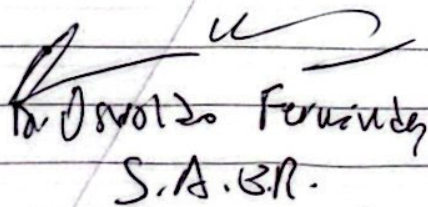 Dr. Osvaldo Fernández
S.A.B.R.